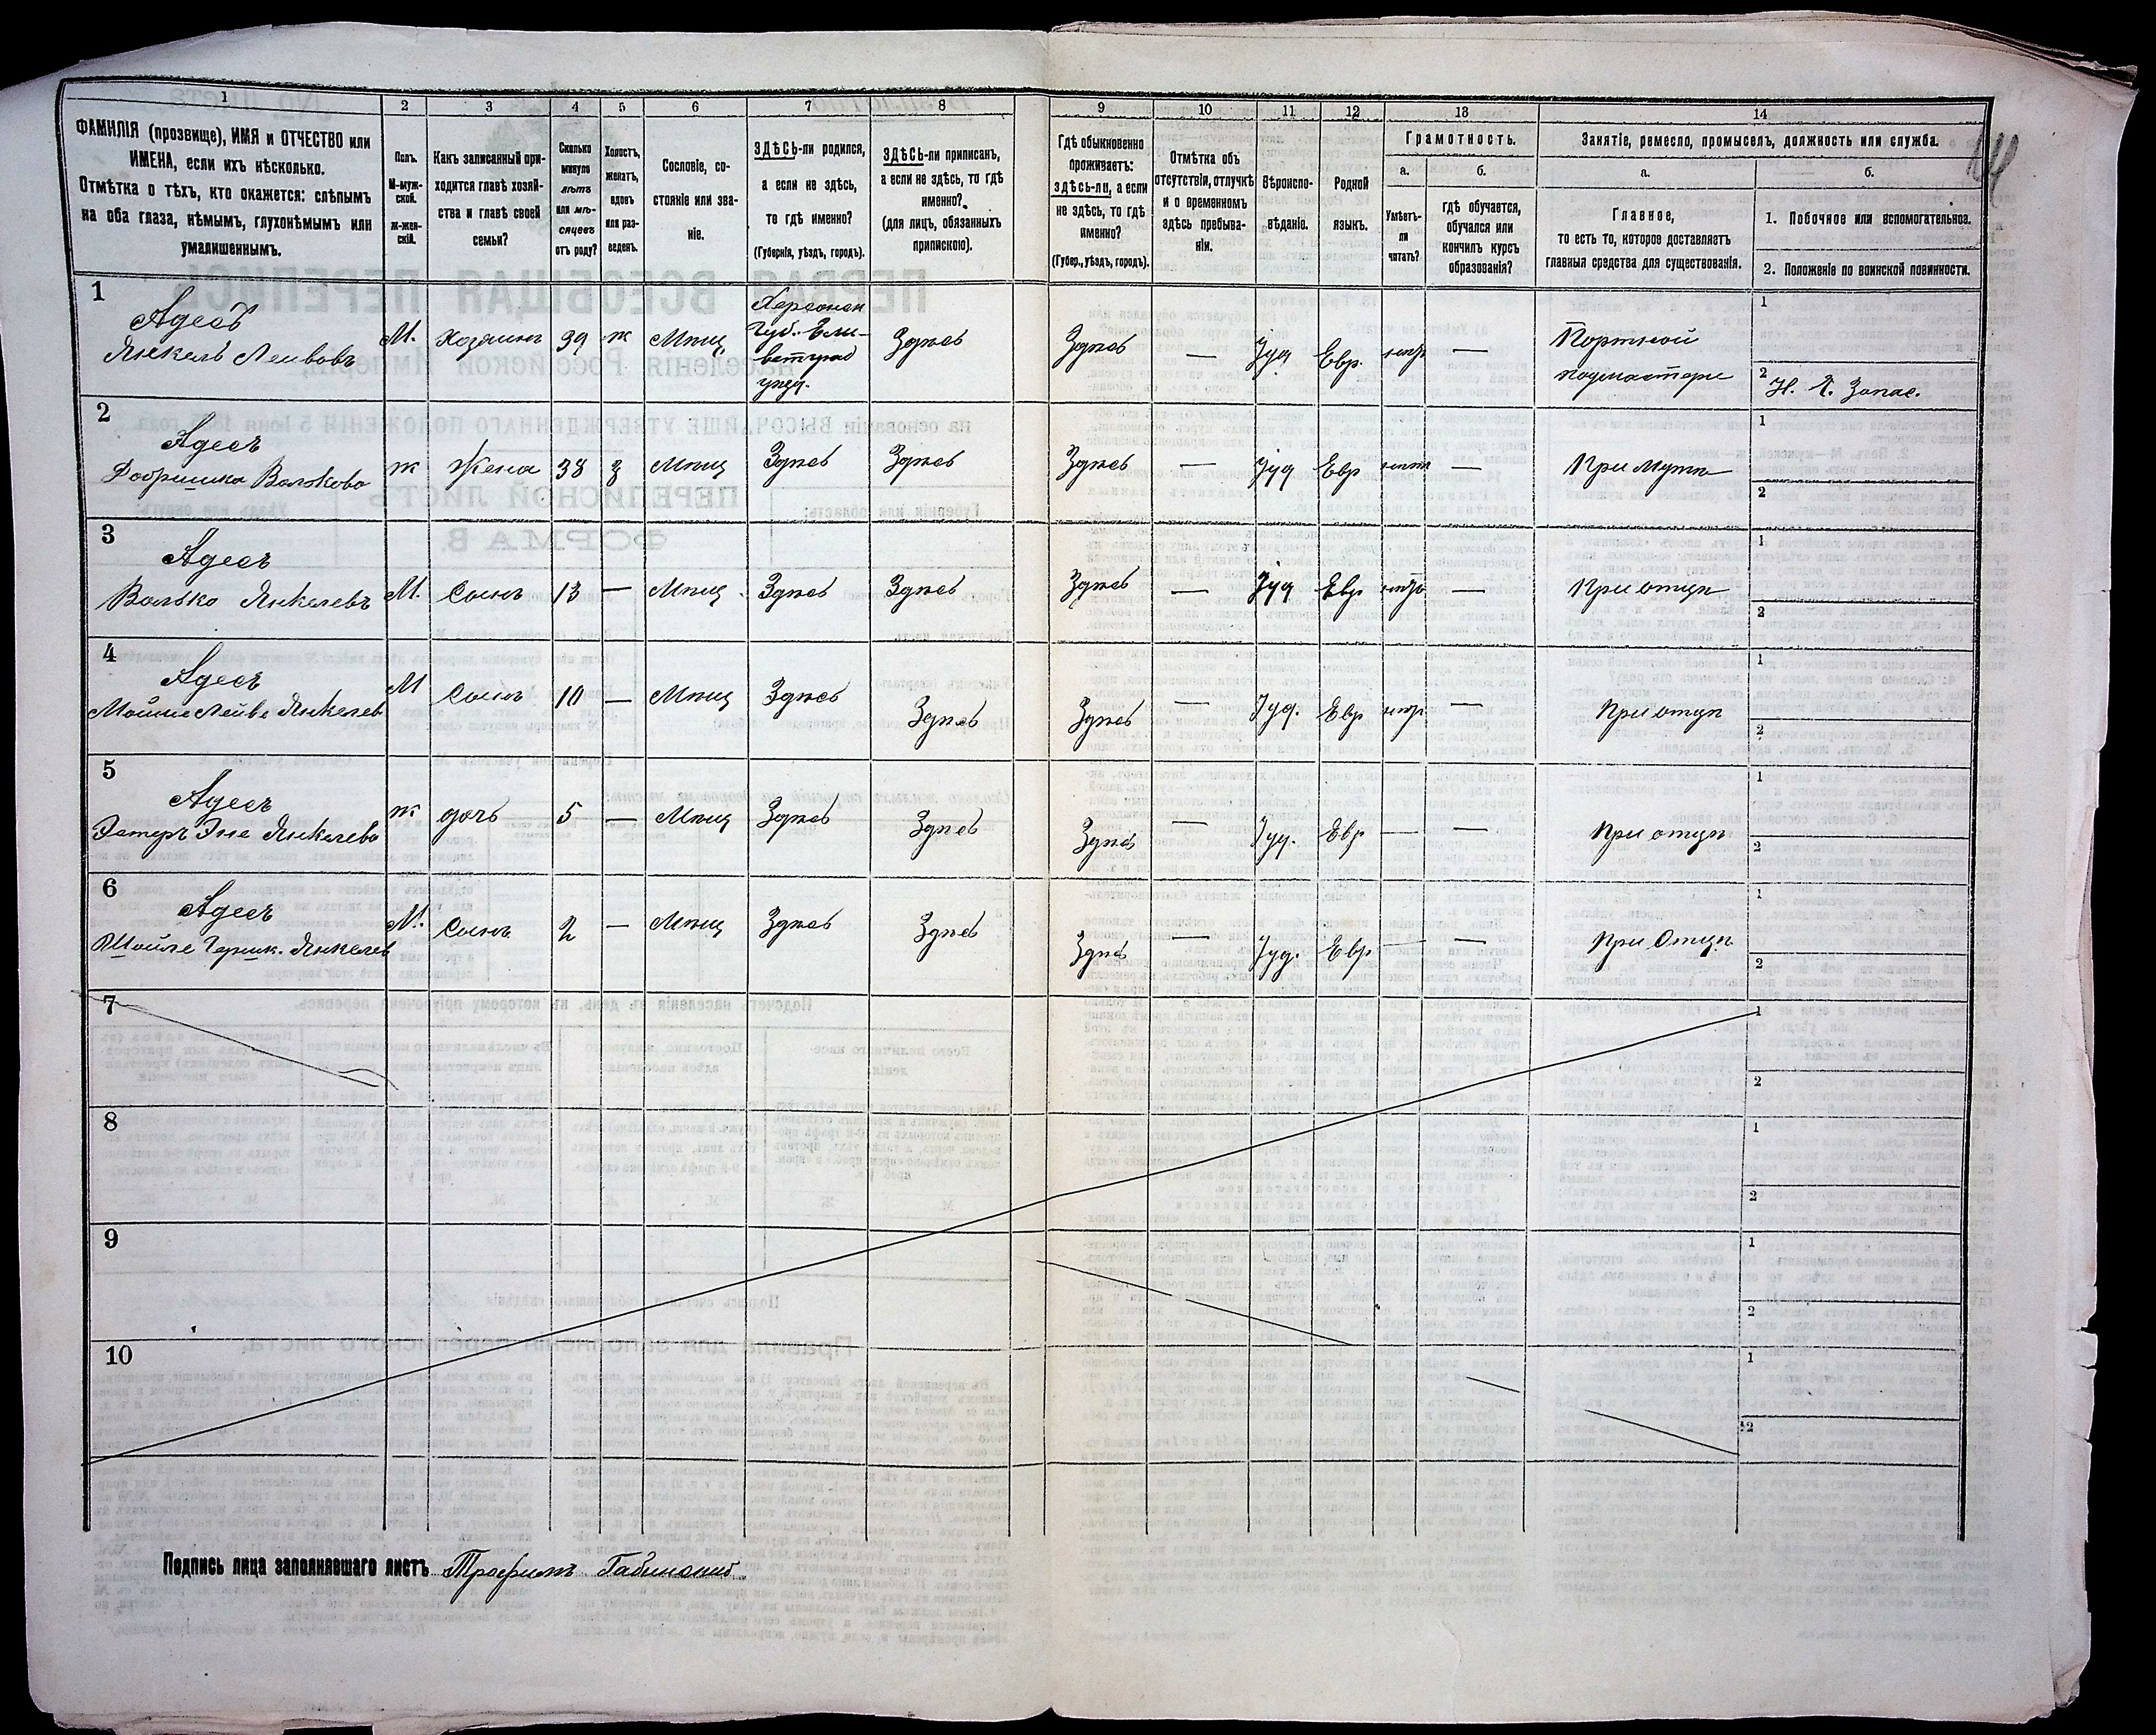 1
2
3
4
5
6
7
8
9
10
11
12
13
14
ФАМИЛІЯ (прозвище), ИМЯ и ОТЧЕСТВО или
ИМЕНА, если ихъ нѣсколько.
Отмѣтка о тѣхъ, кто окажется: слѣпымъ
на оба глаза, нѣмымъ, глухонѣмымъ или
умалишеннымъ.
Полъ.
М-муж-
ской.
Ж-жен-
скій.
Какъ записанный при-
ходится главѣ хозяй-
ства и главѣ своей
семьи?
Сколько
минуло
лѣтъ
или мѣ-
сяцевъ
отъ роду?
Холостъ,
женатъ,
вдовъ
или раз-
веденъ.
Сословіе, со-
стояніе или зва-
ніе.
ЗДѢСЬ-ли родился,
а если не здѣсь,
то гдѣ именно?
(Губернія, уѣздъ, городъ).
ЗДѢСЬ-ли приписанъ,
а если не здѣсь, то гдѣ
именно?
(для лицъ, обязанныхъ
припискою).
Гдѣ обыкновенно
проживаетъ:
здѣсь-ли, а если
не здѣсь, то гдѣ
именно?
(Губер., уѣздъ, городъ).
Отмѣтка объ
отсутствіи, отлучкѣ
и о временномъ
здѣсь пребыва-
ніи.
Вѣроиспо-
вѣданіе.
Родной
языкъ.
Грамотность.
а.
Умѣетъ-
ли
читать?
б.
гдѣ обучается,
обучался или
кончилъ курсъ
образованія?
Занятіе, ремесло, промыселъ, должность или служба.
а.
Главное,
то есть то, которое доставляетъ
главныя средства для существованія.
б.
1. Побочное или вспомогательное.
2. Положеніе по воинской повинности.
1
Адесъ
Янкель Лейвовъ
М. Хозяинъ 39 ж Мѣщ.
Херсонск
Губ. Ели-
ветград
уѣзд.
Здѣсь Здѣсь — Іуд Евр. —
Портной
подмастерье
1
2 Н. Р. Запас.
2
Адесъ
Добришка Волькова
ж Жена 38 з Мѣщ Здѣсь Здѣсь Здѣсь — Іуд Евр — При мужѣ
1
2
3
Адесъ
Волько Янкелевъ
М. Сынъ 13 — Мѣщ Здѣсь Здѣсь Здѣсь — Іуд Евр — При отцѣ
1
2
4
Адесъ
Мойше Лейве Янкелев
М Сынъ 10 — Мѣщ Здѣсь Здѣсь Здѣсь — Іуд. Евр — При отцѣ
1
2
5
Адесъ
Эстеръ Эне Янкелева
ж дочь 5 — Мѣщ Здѣсь Здѣсь Здѣсь — Іуд. Евр — — При отцѣ
1
2
6
Адесъ
Шойле Гершк. Янкелев
М. Сынъ 2 — Мѣщ Здѣсь Здѣсь Здѣсь — Іуд. Евр — — При Отцѣ
1
2
7
1
2
8
1
2
9
1
2
10
1
2
Подпись лица заполнявшаго листъ Трофимъ Габинскій